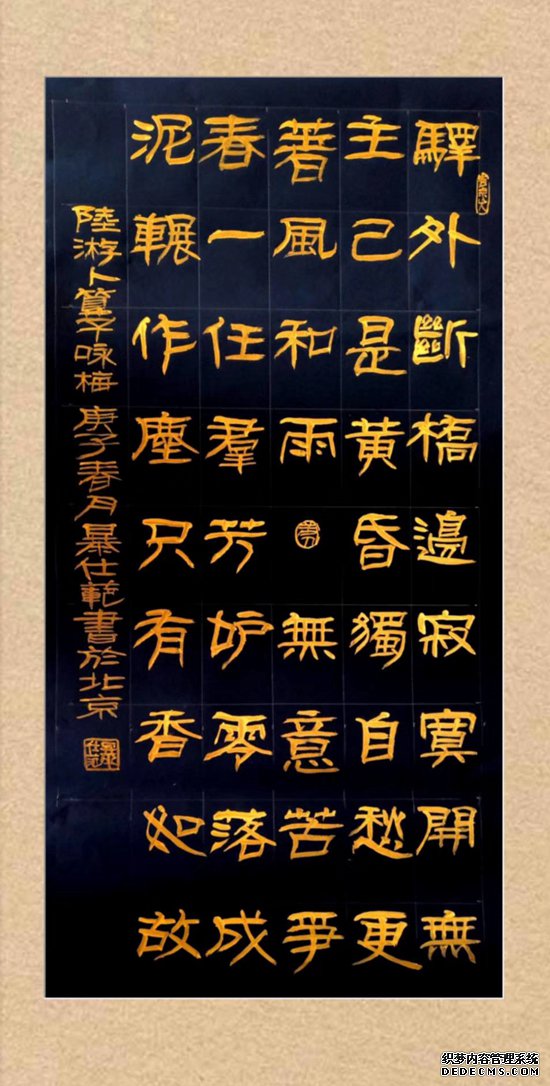 驛外斷橋邊寂寞開無
主己是黃昏獨自愁更
著風和雨無意苦爭
春一任羣芳妒零落成
泥輾作塵只有香如故
陸游卜算子咏梅 庚子春月暴仕範書於北京
织梦内容管理系统
DEDECMS.COM